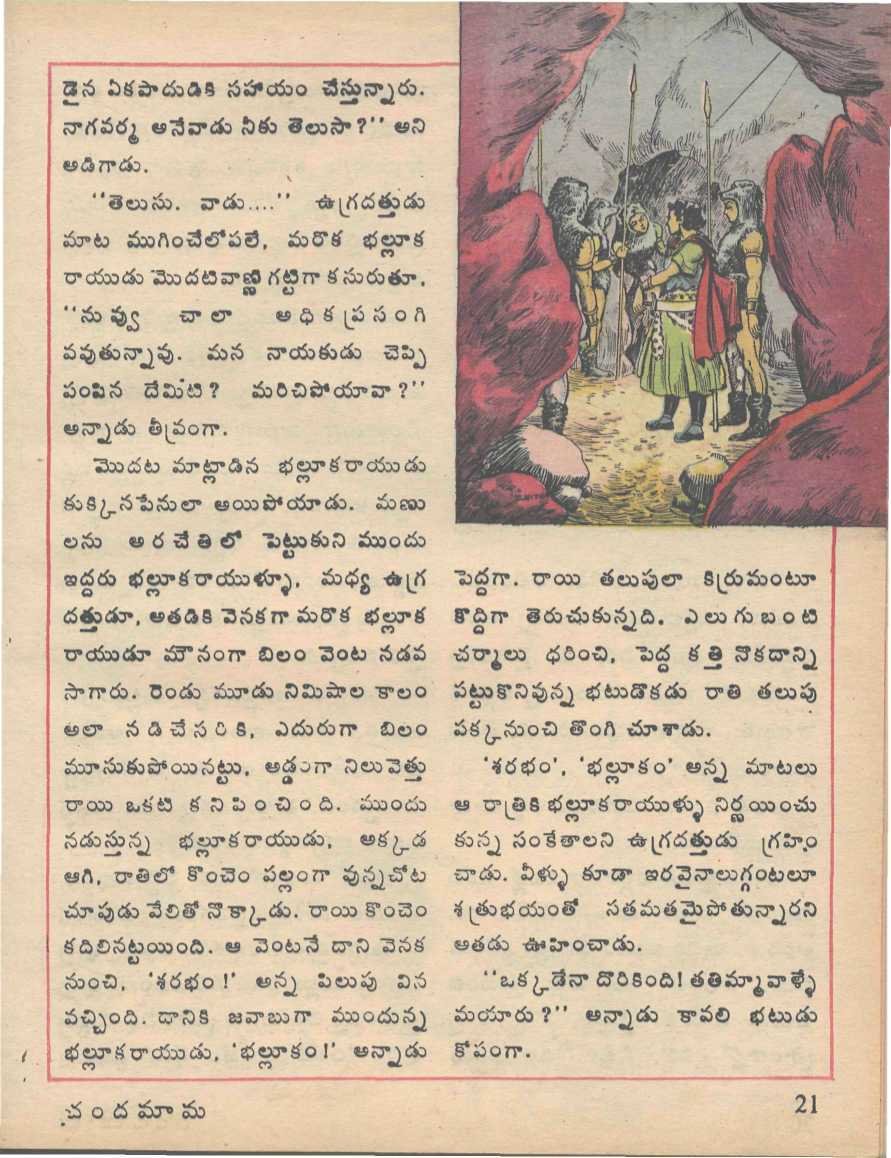 డైన ఏకపాదుడికి సహాయం చేస్తున్నారు.
నాగవర్మ అనేవాడు నీకు తెలుసా?'' అని
అడిగాడు.
''తెలుసు. వాడు....'' ఉగ్రదత్తుడు
మాట ముగించేలోపలే, మరొక భల్లూక
రాయుడు మొదటివాణ్ణి గట్టిగా కసురుతూ,
''నువ్వు చాలా అధికప్రసంగి
వవుతున్నావు. మన నాయకుడు చెప్పి
పంపిన దేమిటి? మరిచిపోయావా?''
అన్నాడు తీవ్రంగా.
మొదట మాట్లాడిన భల్లూకరాయుడు
కుక్కినపేనులా అయిపోయాడు. మణు
లను అరచేతిలో పెట్టుకుని ముందు
ఇద్దరు భల్లూకరాయుళ్ళూ, మధ్య ఉగ్ర
దత్తుడూ, అతడికి వెనకగా మరొక భల్లూక
రాయుడూ మౌనంగా బిలం వెంట నడవ
సాగారు. రెండు మూడు నిమిషాల కాలం
అలా నడిచేసరికి, ఎదురుగా బిలం
మూసుకుపోయినట్టు, అడ్డంగా నిలువెత్తు
రాయి ఒకటి కనిపించింది. ముందు
నడుస్తున్న భల్లూకరాయుడు, అక్కడ
ఆగి, రాతిలో కొంచెం పల్లంగా వున్నచోట
చూపుడు వేలితో నొక్కాడు. రాయి కొంచెం
కదిలినట్టయింది. ఆ వెంటనే దాని వెనక
నుంచి, 'శరభం!' అన్న పిలుపు విన
వచ్చింది. దానికి జవాబుగా ముందున్న
భల్లూకరాయుడు, 'భల్లూకం!' అన్నాడు
పెద్దగా. రాయి తలుపులా కిర్రుమంటూ
కొద్దిగా తెరుచుకున్నది. ఎలుగుబంటి
చర్మాలు ధరించి, పెద్ద కత్తి నొకదాన్ని
పట్టుకొనివున్న భటుడొకడు రాతి తలుపు
పక్కనుంచి తొంగి చూశాడు.
'శరభం', 'భల్లూకం' అన్న మాటలు
ఆ రాత్రికి భల్లూకరాయుళ్ళు నిర్ణయించు
కున్న సంకేతాలని ఉగ్రదత్తుడు గ్రహిం
చాడు. వీళ్ళు కూడా ఇరవైనాలుగ్గంటలూ
శత్రుభయంతో సతమతమైపోతున్నారని
అతడు ఊహించాడు.
''ఒక్కడేనా దొరికింది! తతిమ్మావాళ్ళే
మయారు?'' అన్నాడు కావలి భటుడు
కోపంగా.
చందమామ
21